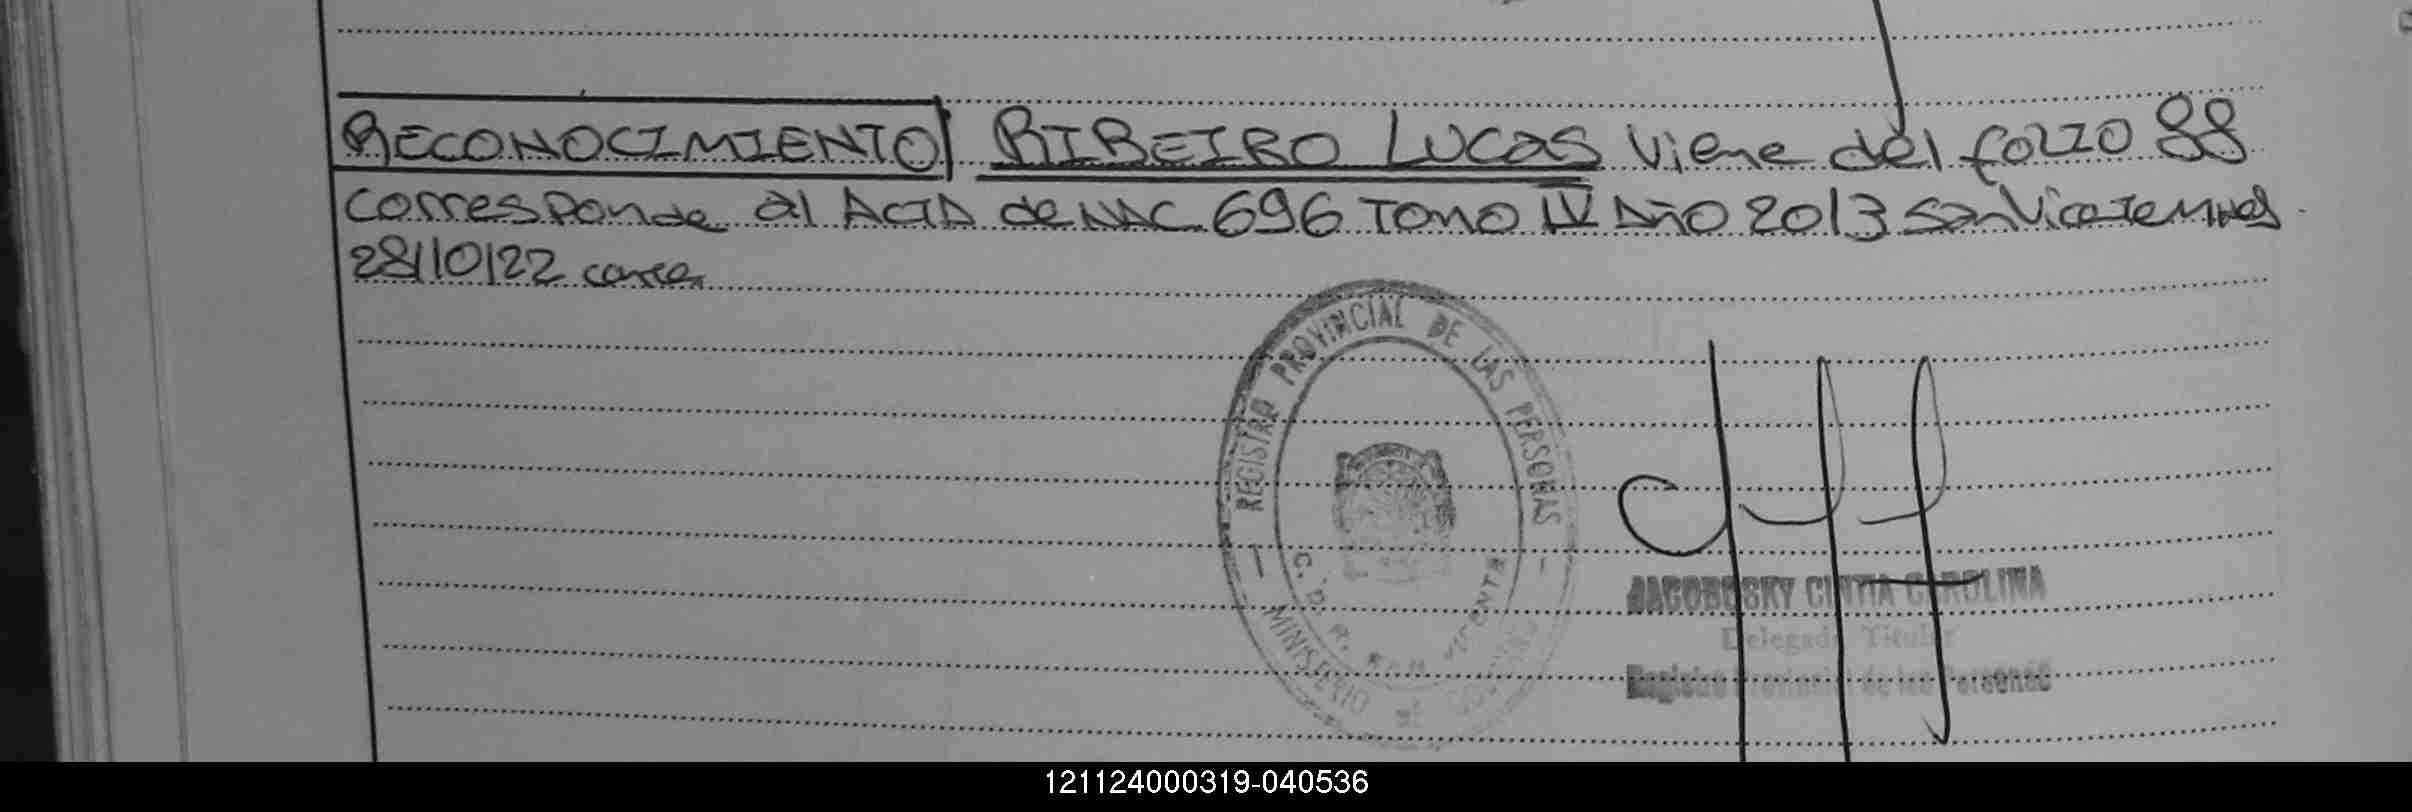 RECONOCIMIENTO RIBEIRO LUCAS viene del folio 88
corresponde al ACTA de NAC 696 Tomo IV Año 2013 San Vicente Mnes
28/10/22
REGISTRO PROVINCIAL DE LAS PERSONAS
C. D. R. SAN VICENTE
MINISTERIO DE GOBIERNO
JACOBOSKY CINTIA CAROLINA
Delegada Titular
Registro Provincial de las Personas
121124000319-040536